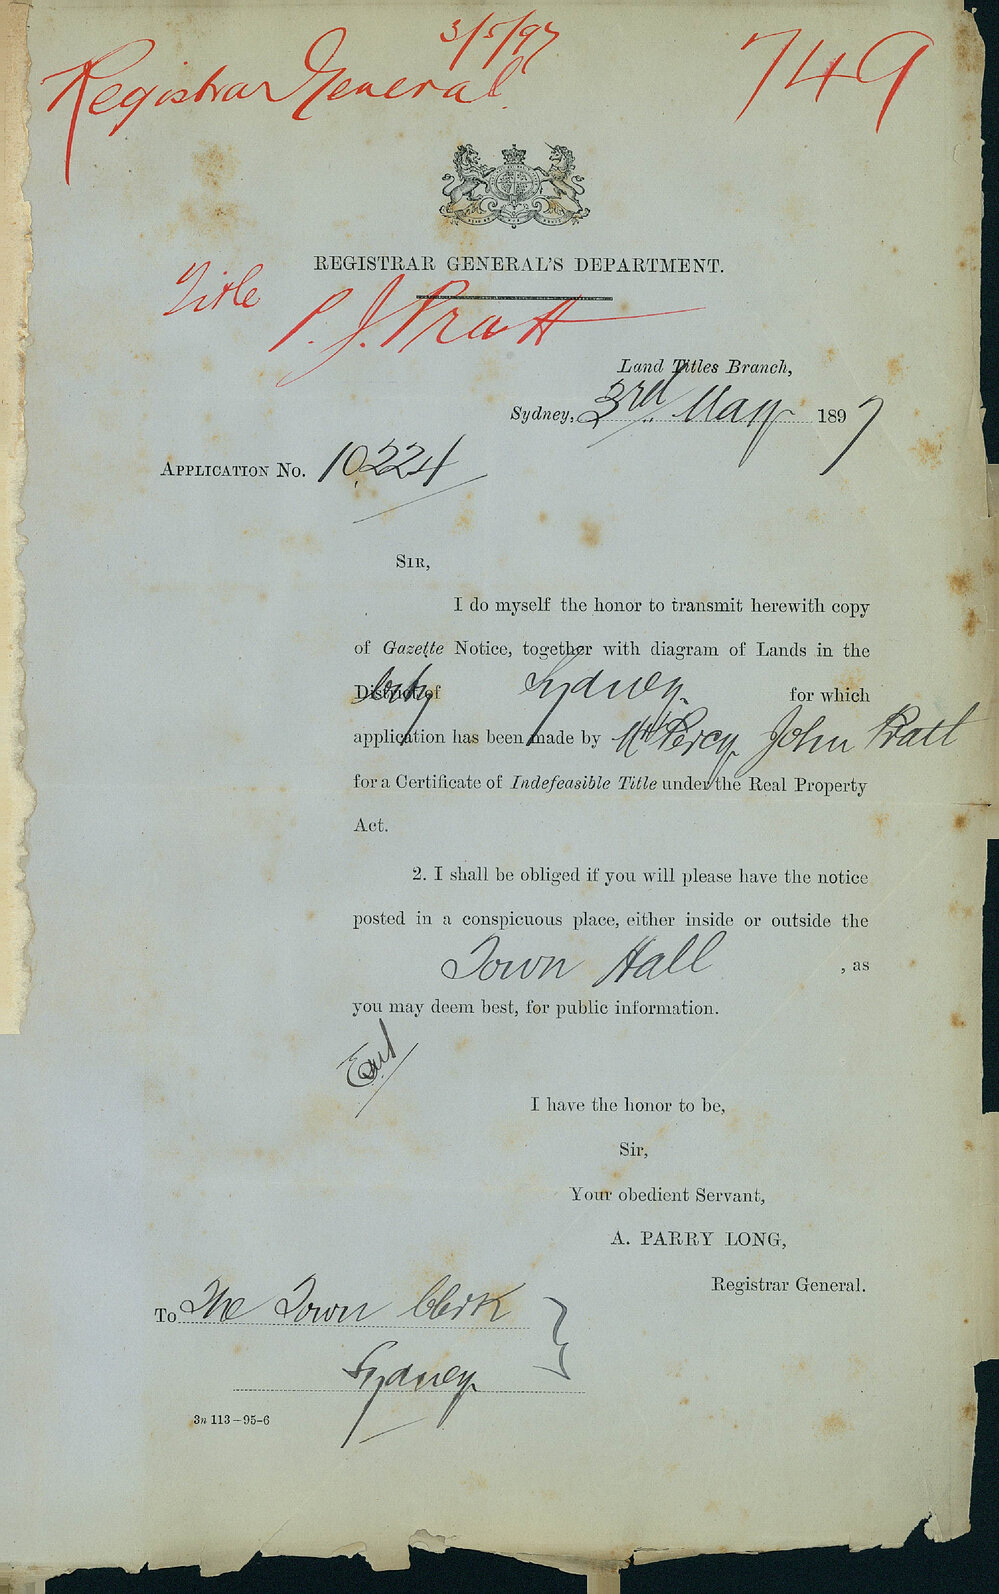 3/5/97
Registrar General
749
REGISTRAR GENERAL'S DEPARTMENT.
Title
P. J. Pratt
Land Titles Branch,
Sydney, 3rd May 1897
APPLICATION No. 10224
SIR,
I do myself the honor to transmit herewith copy
of Gazette Notice, together with diagram of Lands in the
District of City Sydney for which
application has been made by Mr Percy John Pratt
for a Certificate of Indefeasible Title under the Real Property
Act.
2. I shall be obliged if you will please have the notice
posted in a conspicuous place, either inside or outside the
Town Hall , as
you may deem best, for public information.
I have the honor to be,
Sir,
Your obedient Servant,
A. PARRY LONG,
Registrar General.
To The Town Clerk
Sydney
3n 113-95-6